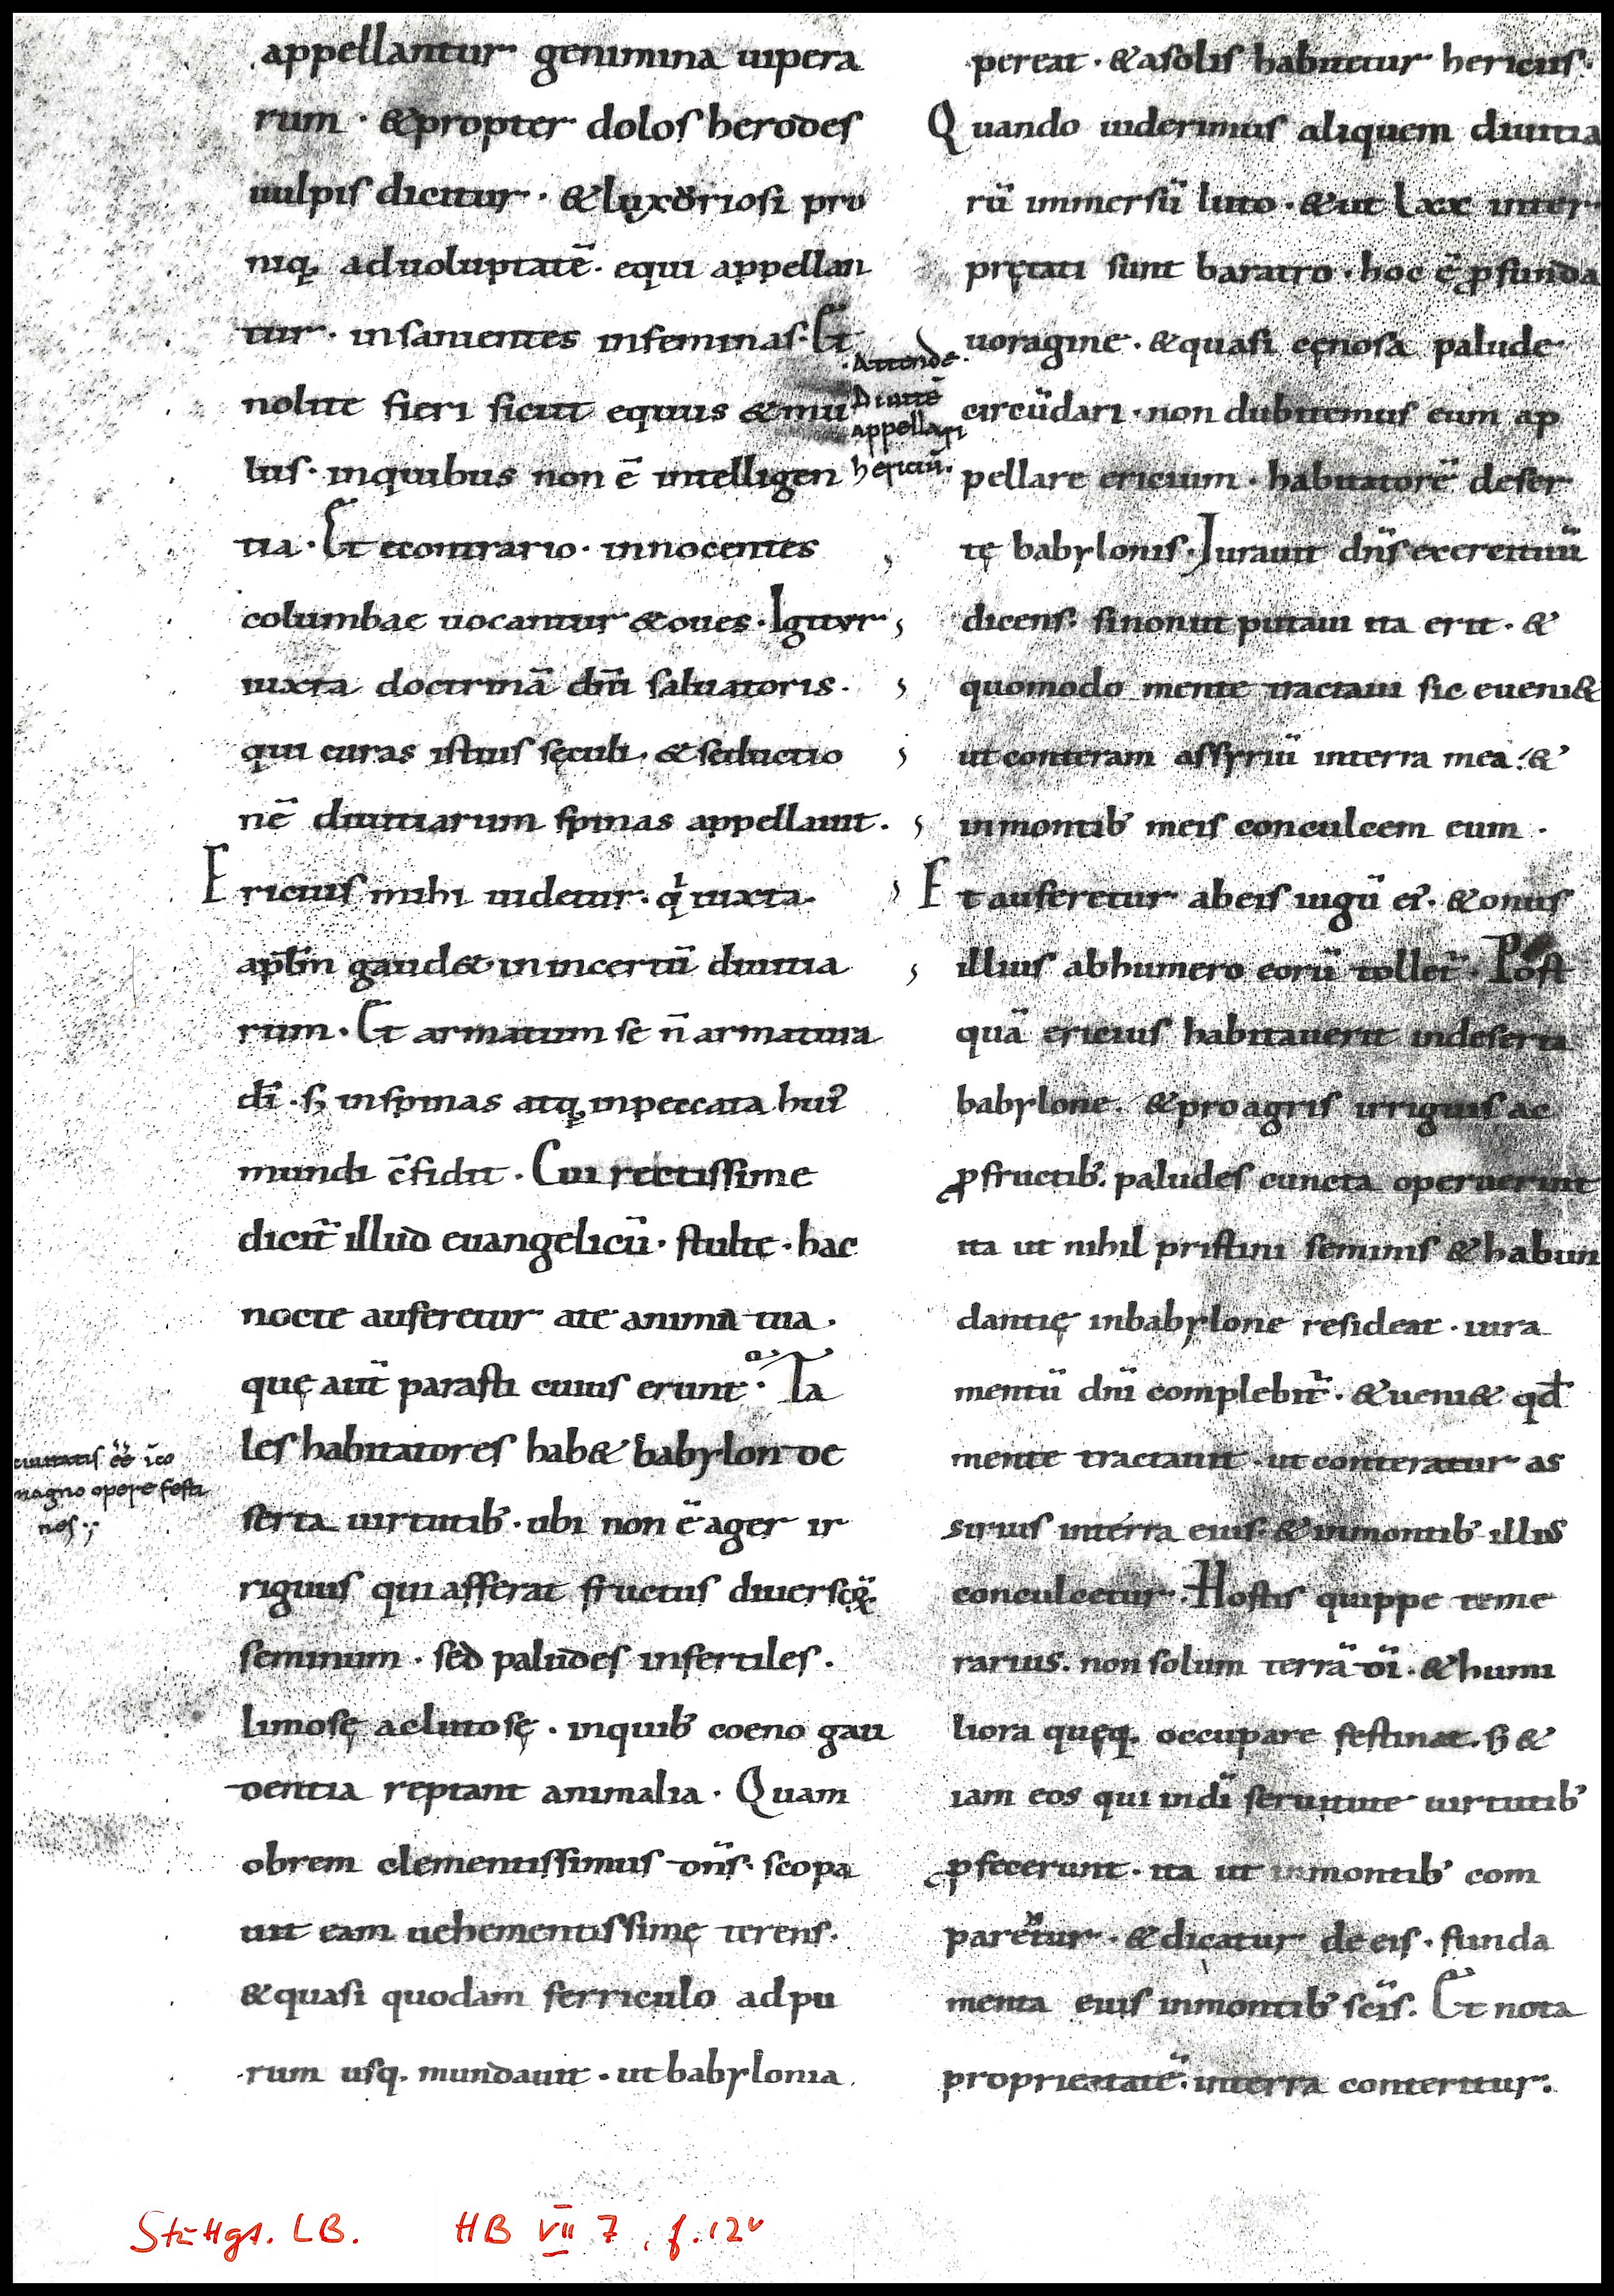 appellantur genimina uipera
rum · &propter dolos herodes
uulpis dicitur · &luxoriosi pro
niq; aduoluptatē · equi appellan
tur · insanientes infeminas · Et
nolite fieri sicut equus &mu
lus · inquibus non ē intelligen
tia · Et econtrario · innocentes
columbae uocantur &oues · Igitur
iuxta doctrinā dn̄i saluatoris ·
qui curas istius sęculi · &seductio
nē diuitiarum spinas appellauit ·
Ericius mihi uidetur · q' iuxta
apl̄m gaud& inincertū diuitia
rum · Et armatum se n̄ armatura
dī · s; inspinas atq; inpeccata hui'
mundi c̄fidit · Cui rectissime
dicit̄ illud euangelicū · stultę · hac
nocte auferetur ate anima tua ·
quę aūt parasti cuius erunt · Ta
les habitatores hab& babylon de
serta uirtutib' · ubi non ē ager ir
riguus qui afferat fructus diuersoꝝ
seminum · sed paludes infertiles ·
limosę aclutosę · inquib' coeno gau
dentia reptant animalia · Quam
obrem clementissimus dn̄s · scopa
uit eam uehementissimę terens ·
&quasi quodam ferriculo adpu
rum usq; mundauit · ut babylonia
ciuitatis eē ico
magno opere festi
nes
Attende
Diuitē
appellari
hericiū ·
pereat · &asolis habitetur hericiis ·
Quando uiderimus aliquem diuitia
rū immersū luto · &ut lxx inter
pretati sunt baratro · hoc ē ꝓfunda
uoragine · &quasi cęnosa palude
circūdari · non dubitemus eum ap
pellare ericium · habitatorē deser
tę babylonis · Iurauit dn̄s exercituū
dicens · sinonut putaui ita erit · &
quomodo mente tractaui sic eueni&
ut conteram assyriū interra mea · &
inmontib' meis conculcem eum ·
Et auferetur abeis iugū ei' · &onus
illius abhumero eorū tollet̄ · Post
quā ericius habitauerit indeserta
babylone · &pro agris irriguis ac
ꝓfructib' · paludes cuncta operuerint
ita ut nihil pristini seminis &habun
dantię inbabylone resideat · iura
mentū dn̄i complebit̄ · &ueni& qd̄
mente tractauit · ut conteratur as
sirius interra eius · &inmontib' illis
conculcetur · Hostis quippe teme
rarius · non solum terrā dī · &humi
liora quęq; occupare festinat · s; &
iam eos qui indī seruitute uirtutib'
ꝓfecerunt · ita ut inmontib' com
parētur · &dicatur de eis · funda
menta eius inmontib' scīs · Et nota
proprietatē · interra conteritur ·
Stuttgt. LB. HB VII 7, f. 12v